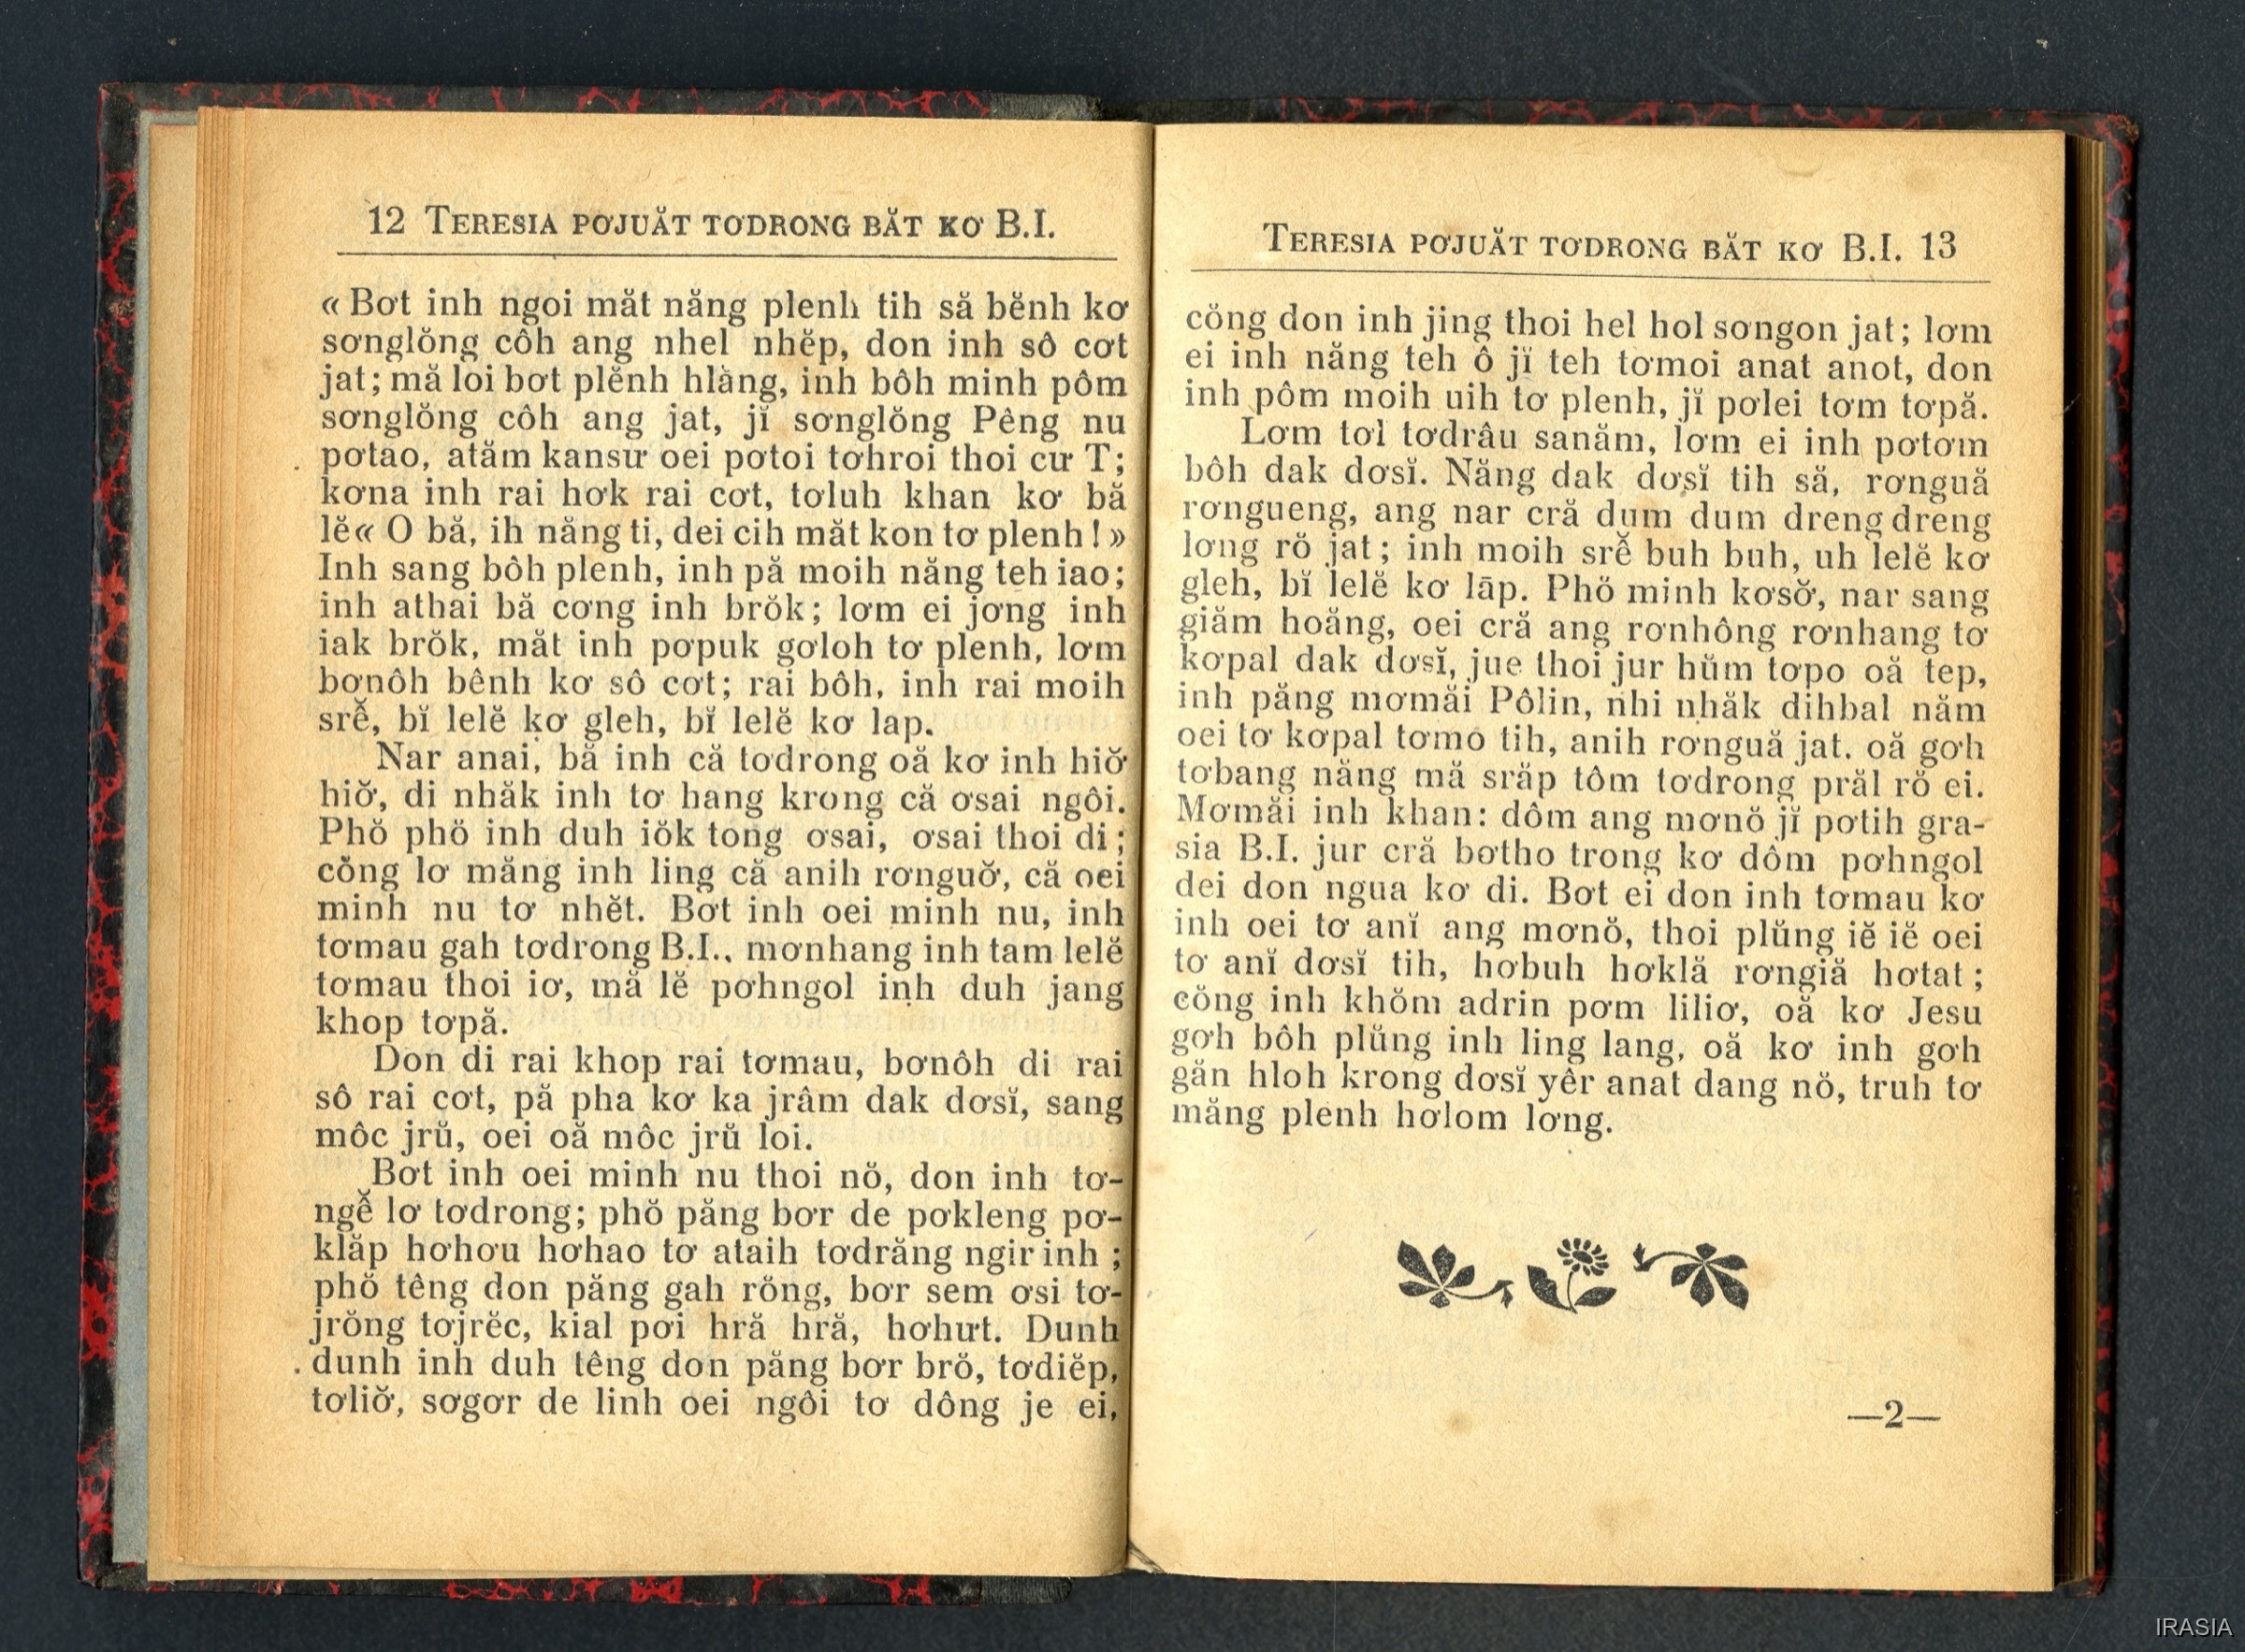 12 TERESIA PƠJUĂT TƠDRONG BĂT KƠ B.I.
« Bơt inh ngoi măt năng plenh tih să bĕnh kơ
sơnglŏng côh ang nhel nhĕp, don inh sô cơt
jat; mă loi bơt plĕnh hlăng, inh bôh minh pôm
sơnglŏng côh ang jat, jĭ sơnglŏng Pêng nu
pơtao, atăm kansư oei pơtoi tơhroi thoi cư T;
kơna inh rai hơk rai cơt, tơluh khan kơ bă
lĕ « O bă, ih năng ti, dei cih măt kon tơ plenh ! »
Inh sang bôh plenh, inh pă moih năng teh iao;
inh athai bă cơng inh brŏk; lơm ei jơng inh
iak brŏk, măt inh pơpuk gơloh tơ plenh, lơm
bơnôh bênh kơ sô cơt; rai bôh, inh rai moih
srễ, bĭ lelĕ kơ gleh, bĭ lelĕ kơ lap.
Nar anai, bă inh că tơdrong oă kơ inh hiơ̆
hiơ̆, di nhăk inh tơ hang krong că ơsai ngôi.
Phŏ phŏ inh duh iŏk tong ơsai, ơsai thoi di ;
cŏng lơ măng inh ling că anih rơnguơ̆, că oei
minh nu tơ nhĕt. Bơt inh oei minh nu, inh
tơmau gah tơdrong B.I., mơnhang inh tam lelĕ
tơmau thoi iơ, mă lĕ pơhngol inh duh jang
khop tơpă.
Don di rai khop rai tơmau, bơnôh di rai
sô rai cơt, pă pha kơ ka jrâm dak dơsĭ, sang
môc jrŭ, oei oă môc jrŭ loi.
Bơt inh oei minh nu thoi nŏ, don inh tơ-
ngễ lơ tơdrong; phŏ păng bơr de pơkleng pơ-
klăp hơhơu hơhao tơ ataih tơdrăng ngir inh ;
phŏ têng don păng gah rŏng, bơr sem ơsi tơ-
jrŏng tơjrĕc, kial pơi hră hră, hơhưt. Dunh
dunh inh duh têng don păng bơr brŏ, tơdiĕp,
tơliơ̆, sơgơr de linh oei ngôi tơ dông je ei,
TERESIA PƠJUĂT TƠDRONG BĂT KƠ B.I. 13
cŏng don inh jing thoi hel hol sơngon jat; lơm
ei inh năng teh ô jĭ teh tơmoi anat anot, don
inh pôm moih uih tơ plenh, jĭ pơlei tơm tơpă.
Lơm tơl tơdrâu sanăm, lơm ei inh pơtơm
bôh dak dơsĭ. Năng dak dơsĭ tih să, rơnguă
rơngueng, ang nar cră dum dum dreng dreng
lơng rŏ jat; inh moih srễ buh buh, uh lelĕ kơ
gleh, bĭ lelĕ kơ lāp. Phŏ minh kơsơ̆, nar sang
giăm hoăng, oei cră ang rơnhông rơnhang tơ
kơpal dak dơsĭ, jue thoi jur hŭm tơpo oă tep,
inh păng mơmăi Pôlin, nhi nhăk dihbal năm
oei tơ kơpal tơmo tih, anih rơnguă jat. oă gơh
tơbang năng mă srăp tôm tơdrong prăl rŏ ei.
Mơmăi inh khan: dôm ang mơnŏ jĭ pơtih gra-
sia B.I. jur cră bơtho trong kơ dôm pơhngol
dei don ngua kơ di. Bơt ei don inh tơmau kơ
inh oei tơ anĭ ang mơnŏ, thoi plŭng iĕ iĕ oei
tơ anĭ dơsĭ tih, hơbuh hơklă rơngiă hơtat ;
cŏng inh khŏm adrin pơm liliơ, oă kơ Jesu
gơh bôh plŭng inh ling lang, oă kơ inh gơh
găn hloh krong dơsĭ yêr anat dang nŏ, truh tơ
măng plenh hơlom lơng.
—2—
IRASIA